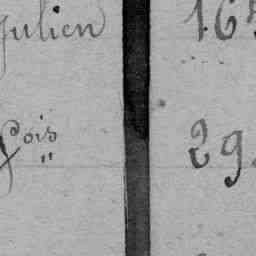 Julien 16
fois 29
"